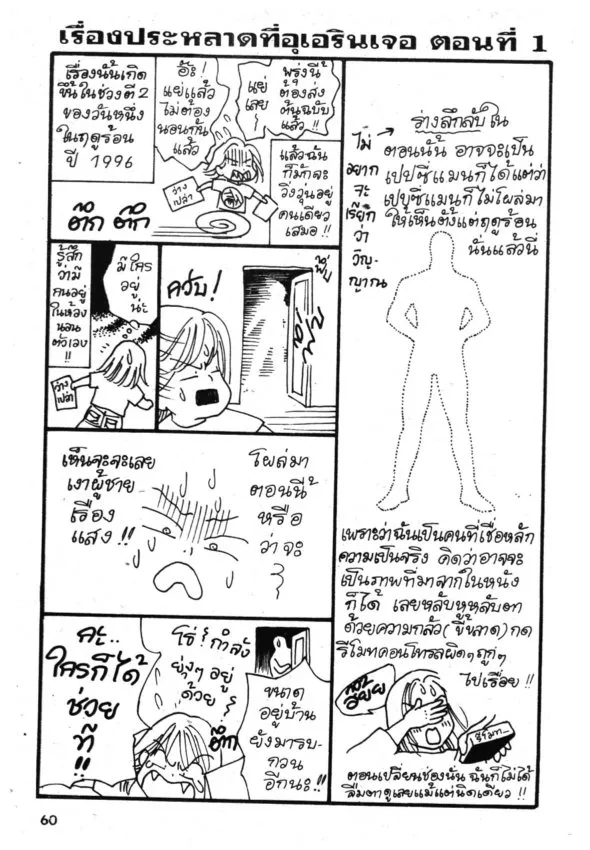 เรื่องประหลาดที่อุเอรินเจอ ตอนที่ 1
เรื่องนั้นเกิด
ขึ้นในช่วงตี 2
ของวันหนึ่ง
ในฤดูร้อน
ปี 1996
อ๊ะ!
แย่แล้ว
ไม่ต้อง
นอนกัน
แล้ว
แย่
เลย
พรุ่งนี้
ต้องส่ง
ต้นฉบับ
แล้ว!!
แล้วฉัน
ก็มักจะ
วิ่งวุ่นอยู่
คนเดียว
เสมอ!!
ว่าง
เปล่า
ตึก ตึก
รู้สึก
ว่ามี
คนอยู่
ในห้อง
นอน
ตัวเอง
!!
มีใคร
อยู่
น่ะ
ว่าง
เปล่า
ควับ!
เห็นจะจะเลย
เงาผู้ชาย
เรือง
แสง!!
โผล่มา
ตอนนี้
หรือ
ว่าจะ
คะ..
ใครก็ได้
ช่วย
ที
!!
โธ่! กำลัง
ยุ่งๆ อยู่
ด้วย
ขนาด
อยู่บ้าน
ยังมารบ-
กวน
อีกนะ!!
ไม่
อยาก
จะ
เรียก
ว่า
วิญ-
ญาณ
ร่างลึกลับใน
ตอนนั้น อาจจะเป็น
เปปซี่แมนก็ได้แต่ว่า
เปปซี่แมนก็ไม่โผล่มา
ให้เห็นตั้งแต่ฤดูร้อน
นั่นแล้วนี่
เพราะว่าฉันเป็นคนที่เชื่อหลัก
ความเป็นจริง คิดว่าอาจจะ
เป็นภาพที่มาจากในหนัง
ก็ได้ เลยหลับหูหลับตา
ด้วยความกลัว (ขี้ขลาด) กด
รีโมทคอนโทรลผิดๆ ถูกๆ
ไปเรื่อย!!
รีโมท...
ตอนเปลี่ยนช่องนั้น ฉันก็ไม่ได้
ลืมตาดูเลยแม้แต่นิดเดียว!!
60